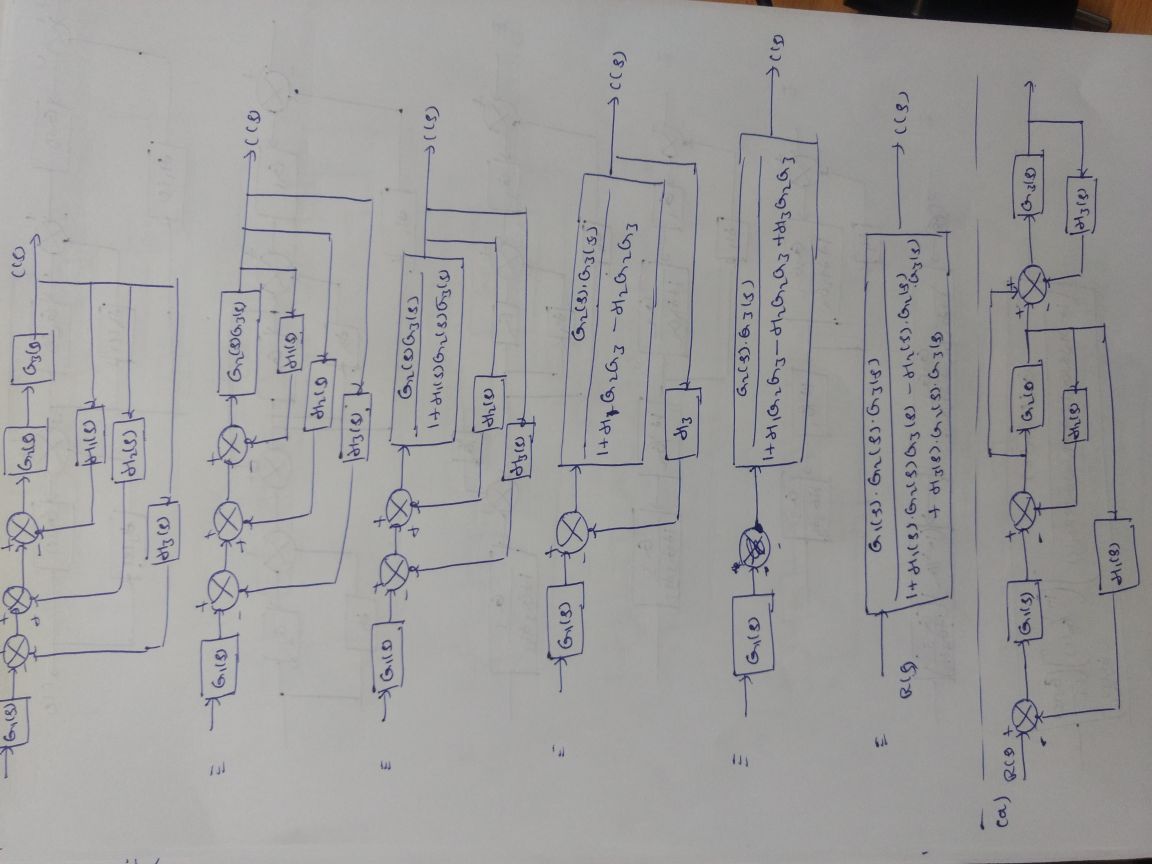 G1(s) + + + - G2(s) G3(s) C(s)
H1(s)
H2(s)
H3(s)
≡ G1(s) + - + + + - G2(s)G3(s) C(s)
H1(s)
H2(s)
H3(s)
≡ G1(s) + - + + G2(s)G3(s) C(s)
1+H1(s)G2(s)G3(s)
H2(s)
H3(s)
≡ G1(s) + - G2(s).G3(s) C(s)
1+H1G2G3 - H2G2G3
H3
≡ G1(s) G2(s).G3(s) C(s)
1+H1G2G3 - H2G2G3 + H3G2G3
≡ R(s) G1(s).G2(s).G3(s) C(s)
1+H1(s).G2(s)G3(s) - H2(s).G2(s).G3(s)
+ H3(s).G2(s).G3(s)
(a) R(s) + - G1(s) + - G2(s) + + - G3(s)
H2(s) H3(s)
H1(s)